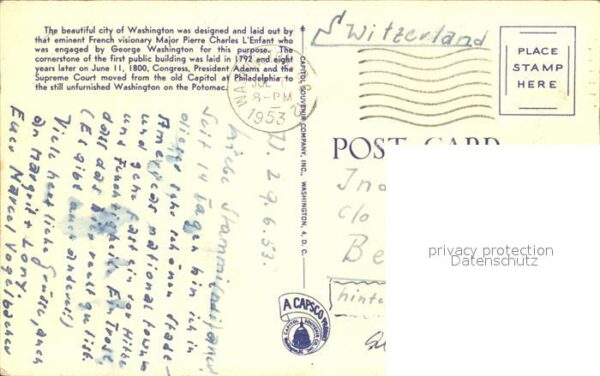 The beautiful city of Washington was designed and laid out by
that eminent French visionary Major Pierre Charles L'Enfant who
was engaged by George Washington for this purpose. The
cornerstone of the first public building was laid in 1792 and eight
years later on June 11, 1800, Congress, President Adams and the
Supreme Court moved from the old Capitol at Philadelphia to
the still unfurnished Washington on the Potomac.
W. 29.6.53.
Liebe Stammtischfamilie
Seit 14 Tagen bin ich in
dieser sehr schönen Stadt
Americas national town
und gehe fast ein vor Hitze
und Feuchtigkeit. Ein Trost
dass das Bier recht gut ist.
(Es gibt auch anderes!)
Viele herzliche Grüsse, auch
an Margrit + Lony.
Euer Marcel Vogelbacher
CAPITOL SOUVENIR COMPANY, INC., WASHINGTON, 4, D. C.
Switzerland
8-PM
1953
PLACE
STAMP
HERE
POST CARD
c/o
Be
hinte
A CAPSCO
CAPITOL SOUVENIR CO.
privacy protection
Datenschutz